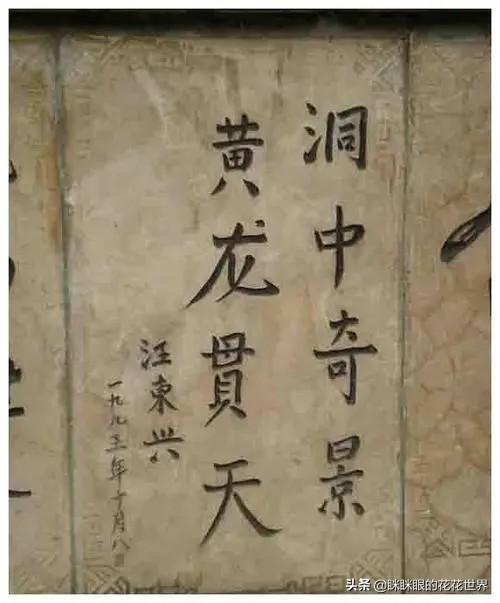 洞中奇景
黄龙贯天
汪东兴
一九九三年十月八日
头条 @眯眯眼的花花世界